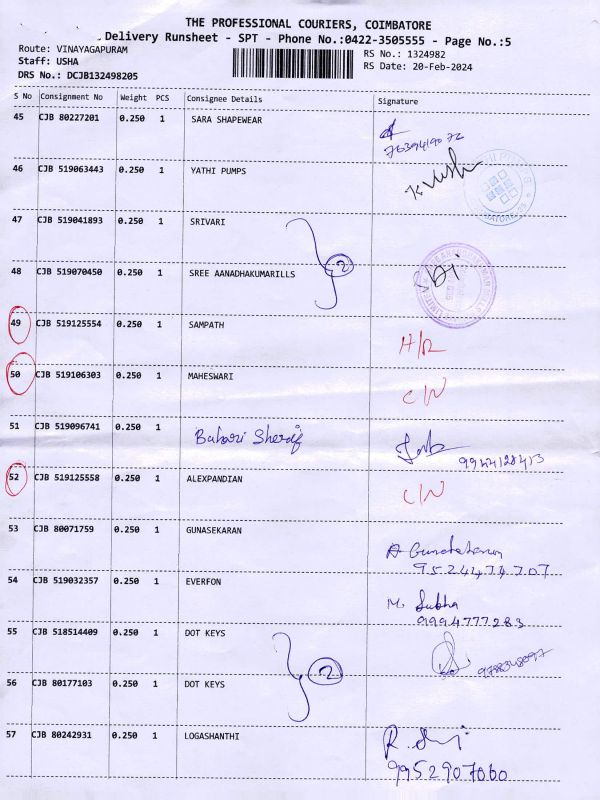 THE PROFESSIONAL COURIERS, COIMBATORE
Delivery Runsheet - SPT - Phone No.:0422-3505555 - Page No.:5
Route: VINAYAGAPURAM RS No.: 1324982
Staff: USHA RS Date: 20-Feb-2024
DRS No.: DCJB132498205
S No Consignment No Weight PCS Consignee Details Signature
45 CJB 80227201 0.250 1 SARA SHAPEWEAR
7639419072
46 CJB 519063443 0.250 1 YATHI PUMPS
47 CJB 519041893 0.250 1 SRIVARI
2
48 CJB 519070450 0.250 1 SREE AANADHAKUMARILLS
49 CJB 519125554 0.250 1 SAMPATH
50 CJB 519106303 0.250 1 MAHESWARI C/N
51 CJB 519096741 0.250 1
9944128413
52 CJB 519125558 0.250 1 ALEXPANDIAN C/N
53 CJB 80071759 0.250 1 GUNASEKARAN
54 CJB 519032357 0.250 1 EVERFON M. Subha
9994777283
55 CJB 518514409 0.250 1 DOT KEYS
2
56 CJB 80177103 0.250 1 DOT KEYS
57 CJB 80242931 0.250 1 LOGASHANTHI
9952907060